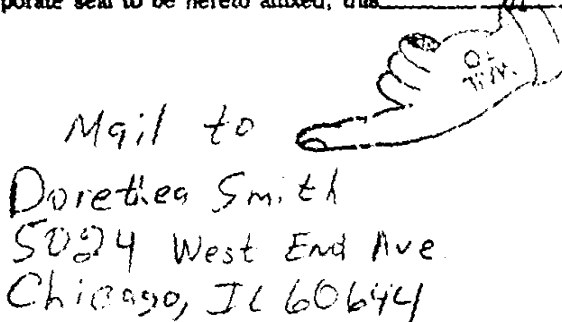 porate seal to be hereto affixed, this
Mail to
Dorethea Smith
5024 West End Ave
Chicago, IL 60644